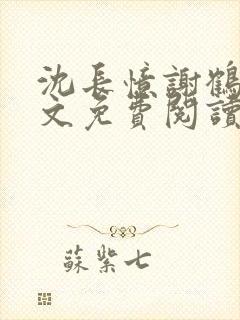 沈長憶謝鶴
文免費閱讀
蘇紫七